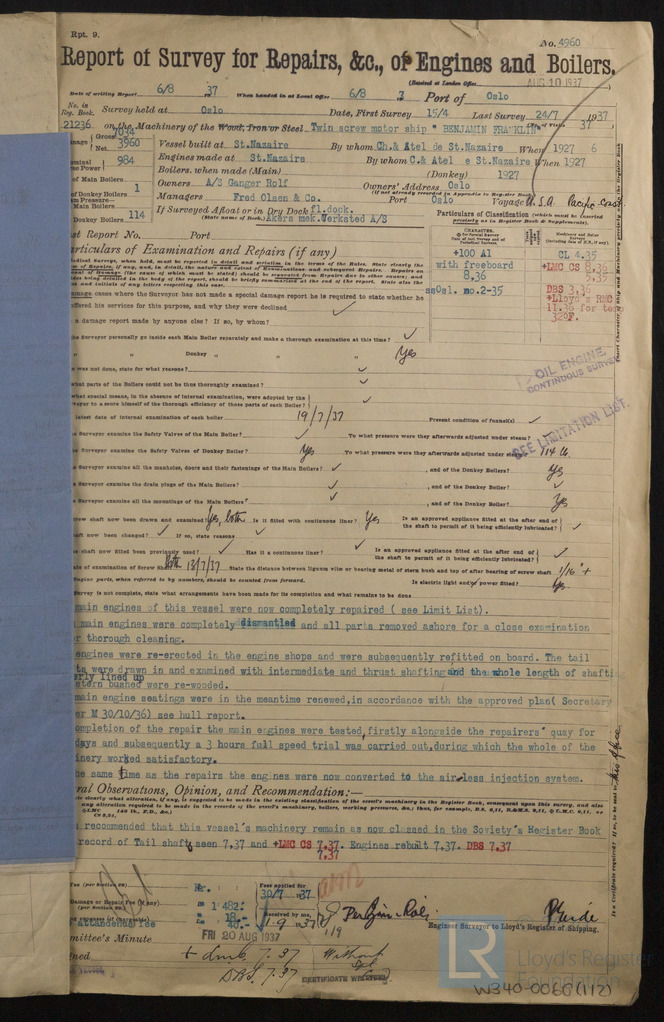 Rpt. 9.
No. 4960
Report of Survey for Repairs, &c., of Engines and Boilers.
(Received at London Office AUG 10 1937
Date of writing Report 6/8 37 When handed in at Local Office 6/8 7 Port of Oslo
No. in Reg. Book. Survey held at Oslo Date, First Survey 15/4 Last Survey 24/7 1937
21236 on the Machinery of the Wood, Iron or Steel Twin screw motor ship "BENJAMIN FRANKLIN" 37
Gross 7034
Net 3960 Vessel built at St.Nazaire By whom Ch.& Atel de St.Nazaire When 1927 6
984 Engines made at St.Nazaire By whom C.& Atel e St.Nazaire When 1927
Boilers, when made (Main) (Donkey) 1927
of Main Boilers
of Donkey Boilers 1 Owners A/S Ganger Rolf Owners' Address Oslo
(If not already recorded in Appendix to Register Book.)
Managers Fred Olsen & Co. Port Oslo Voyage U.S.A. Pacific Coast
Donkey Boiler 114 If Surveyed Afloat or in Dry Dock fl.dock.
(State name of Dock.) Akers mek.Verksted A/S
Particulars of Classification (which must be inserted precisely as in the Register Book & Supplements).
st Report No. Port
articulars of Examination and Repairs (if any)
+100 A1
with freeboard
8,36
ssOsl. no.2-35
CL 4.35
+LMC CS 8,36
5,35
DBS 3,36
+Lloyd's RMC
11.36 for tem
320F.
damage cases where the Surveyor has not made a special damage report he is required to state whether he
offered his services for this purpose, and why they were declined
a damage report made by anyone else? If so, by whom?
he Surveyor personally go inside each Main Boiler separately and make a thorough examination at this time?
" " Donkey " " " " Yes
s was not done, state for what reasons?
what parts of the Boilers could not be thus thoroughly examined?
what special means, in the absence of internal examination, were adopted by the
veyor to assure himself of the thorough efficiency of those parts of each Boiler?
OIL ENGINE.
CONTINUOUS SURVEY
SEE LIMITATION LIST.
latest date of internal examination of each boiler 19/7/37 Present condition of funnel(s)
e Surveyor examine the Safety Valves of the Main Boiler? To what pressure were they afterwards adjusted under steam?
e Surveyor examine the Safety Valves of Donkey Boiler? Yes To what pressure were they afterwards adjusted under steam? 114 lb
e Surveyor examine all the manholes, doors and their fastenings of the Main Boilers? , and of the Donkey Boilers? Yes
e Surveyor examine the drain plugs of the Main Boilers? , and of the Donkey Boiler?
e Surveyor examine all the mountings of the Main Boilers? , and of the Donkey Boiler? Yes
crew shaft now been drawn and examined? Yes, both Is it fitted with continuous liner? Yes Is an approved appliance fitted at the after end of
the shaft to permit of it being efficiently lubricated?
aft now been changed? If so, state reasons
he shaft now fitted been previously used? Has it a continuous liner? Is an approved appliance fitted at the after end of
the shaft to permit of its being efficiently lubricated?
ate of examination of Screw Shaft Both 13/7/37 State the distance between lignum vitæ or bearing metal of stern bush and top of after bearing of screw shaft 1/16" +
Engine parts, when referred to by numbers, should be counted from forward. Is electric light and/or power fitted? Yes
Survey is not complete, state what arrangements have been made for its completion and what remains to be done
main engines of this vessel were now completely repaired ( see Limit List).
main engines were completely dismantled and all parts removed ashore for a close examination
r thorough cleaning.
engines were re-erected in the engine shops and were subsequently refitted on board. The tail
ts were drawn in and examined with intermediate and thrust shafting and the whole length of shafting
erly lined up
stern bushed were re-wooded.
main engine seatings were in the meantime renewed, in accordance with the approved plan( Secretary
er M 30/10/36) see hull report.
ompletion of the repair the main engines were tested, firstly alongside the repairers' quay for
days and subsequently a 3 hours full speed trial was carried out, during which the whole of the
inery worked satisfactory.
he same time as the repairs the engines were now converted to the air-less injection system.
ral Observations, Opinion, and Recommendation:—
recommended that this vessel's machinery remain as now classed in the Soviety's Register Book
record of Tail shaft seen 7.37 and +LMC CS 7,37. Engines rebuilt 7.37. DBS 7.37
7,37
Fee (per Section 29) Kr. Fees applied for
30/7 1937
Damage or Repair Fee (if any)
(per Section 29) 1 482:
expenses (if chargeable) 18.-
Attendance fee 40.-
Received by me,
1-9 1937
1/9
Engineer Surveyor to Lloyd's Register of Shipping.
mittee's Minute FRI 20 AUG 1937
ned + LMC 7.37
DBS 7.37
Without
CERTIFICATE WRITTEN
LR Lloyd's Register
Foundation
W340-0060(1/2)